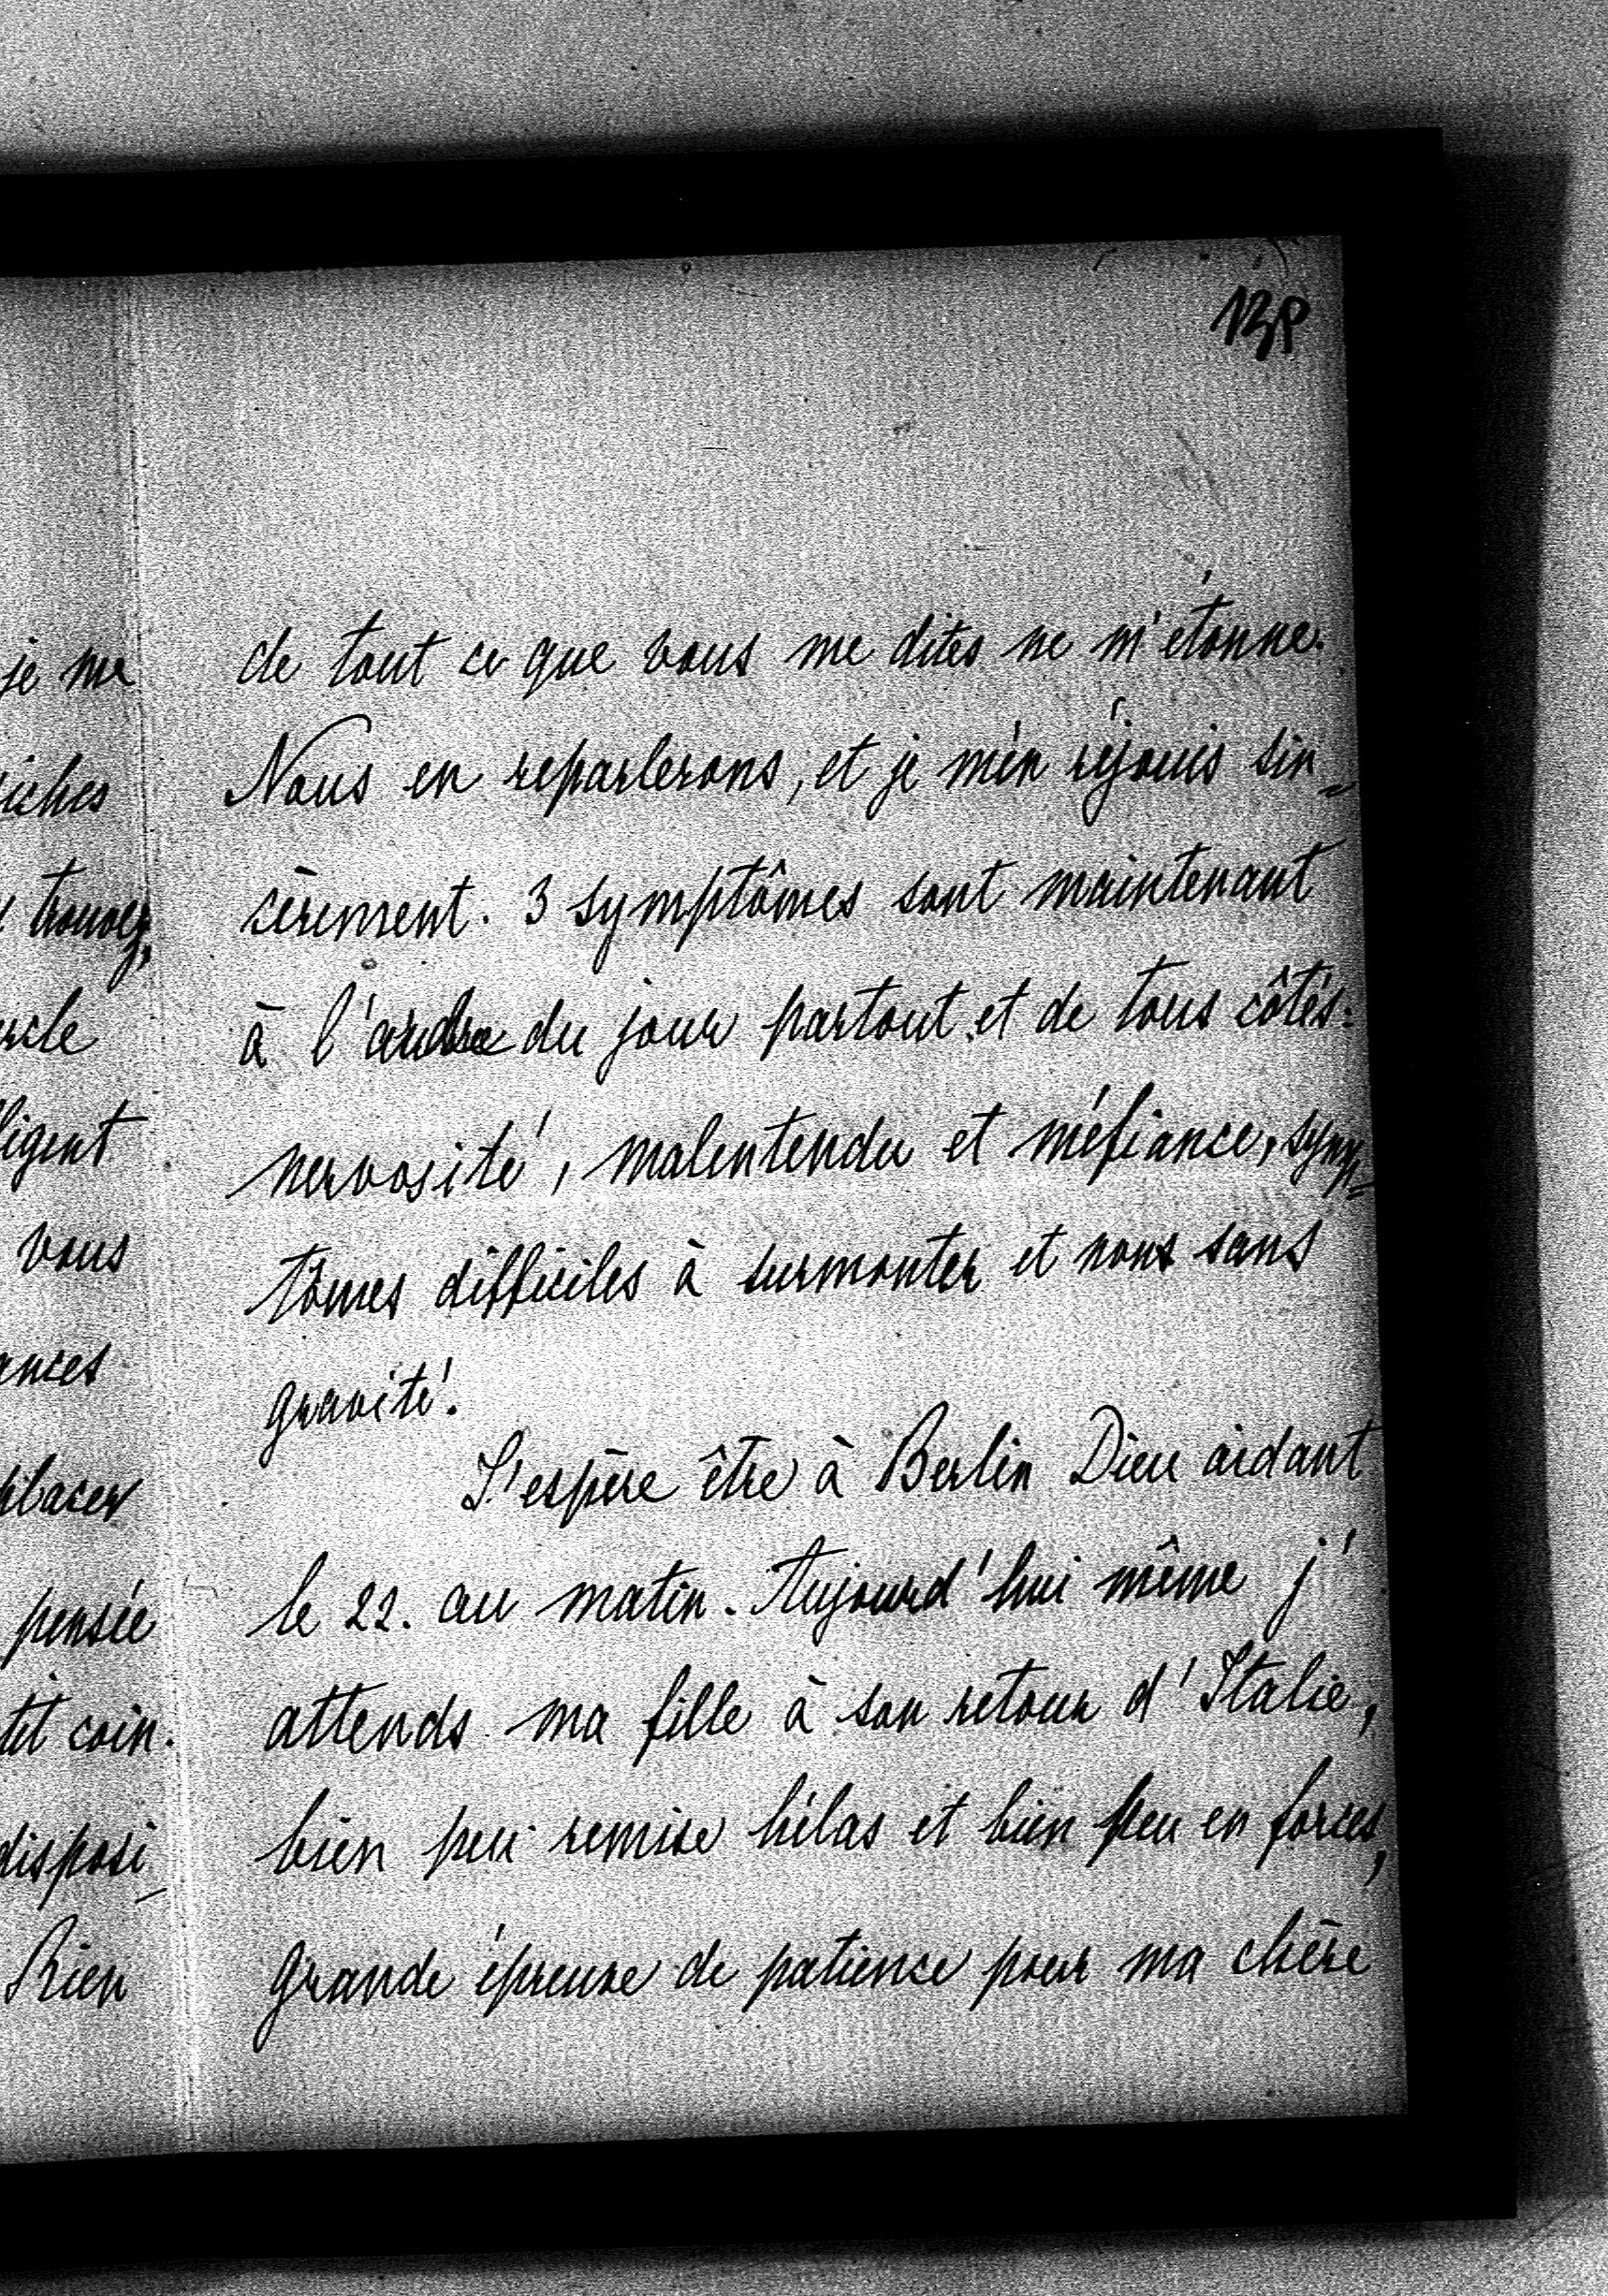 je me
iches
trouvez,
rcle
ligent
vous
ances
placer
pensée
tit coin.
disposi_
Rien
de tout ce que vous me dites ne m'étonne.
Nous en reparlerons, et je m'en réjouis sin=
cèrement. 3 symptômes sont maintenant
à l'ordre du jour partout et de tous côtés:
nervosité, malentendu et méfiance, symp=
tômes difficiles à surmonter et nons sans
gravité.
J'espère être à Berlin Dieu aidant
le 22. au matin. Aujourd'hui même j'
attends ma fille à son retour d'Italie,
bien peu remise hélas et bien peu en forces,
grande épreuve de patience pour ma chère